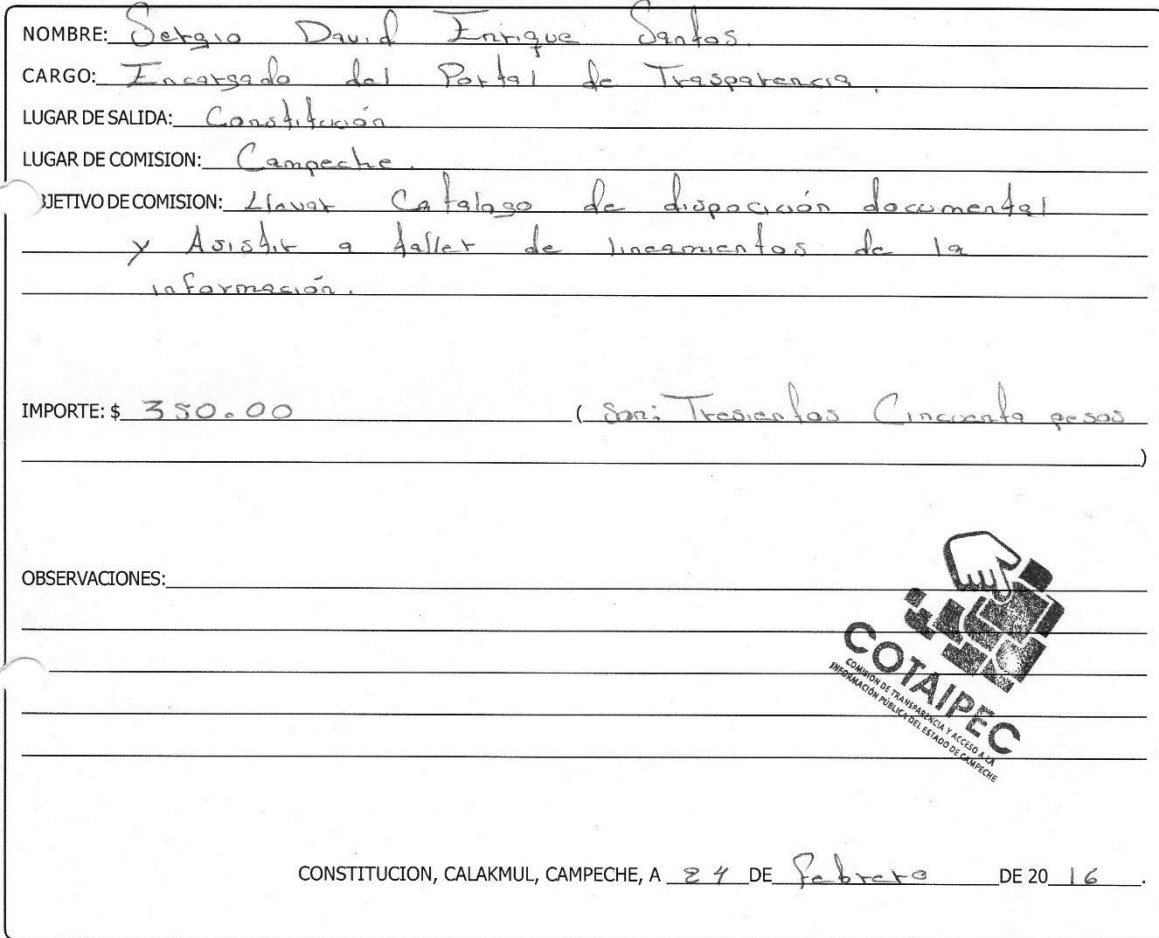 NOMBRE: Sergio David Enrique Santos.
CARGO: Encargado del Portal de Trasparencia.
LUGAR DE SALIDA: Constitución
LUGAR DE COMISION: Campeche.
BJETIVO DE COMISION: Llevar Catalogo de dispocición documental
y Asistir a taller de lineamientos de la
información.
IMPORTE: $ 350.00 ( Son: Tresientos Cincuenta pesos
)
OBSERVACIONES:
COTAIPEC
COMISIÓN DE TRANSPARENCIA Y ACCESO A LA
INFORMACIÓN PÚBLICA DEL ESTADO DE CAMPECHE
CONSTITUCION, CALAKMUL, CAMPECHE, A 24 DE Febrero DE 20 16.